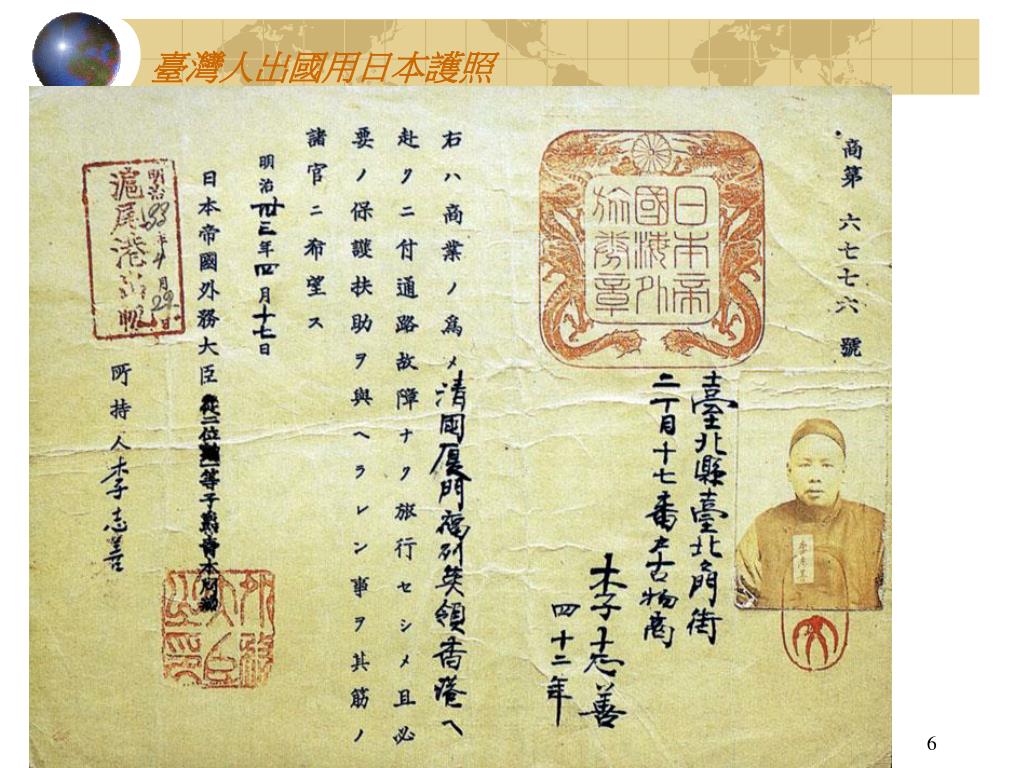 臺灣人出國用日本護照
商第 六七七六 號
日本帝
國海外
旅券章
臺北縣臺北北門街
二丁目十七番戶古物商
李志善
四十二年
李志善
右ハ商業ノ爲メ清國厦門福州英領香港ヘ
赴クニ付通路故障ナク旅行セシメ且必
要ノ保護扶助ヲ與ヘラレン事ヲ其筋ノ
諸官ニ希望ス
明治卅三年四月十七日
日本帝國外務大臣從二位勲一等子爵青木周藏
外務
大臣
之印
明治33年 月29日
滬尾港
所持人李志善
6